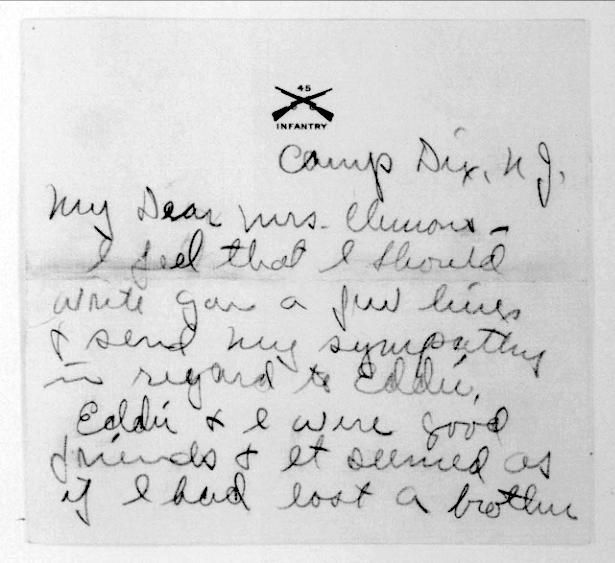 45
INFANTRY
Camp Dix, N J.
My Dear Mrs. Clemons -
I feel that I should
write you a few lines
& send my sympathy
in regard to Eddie,
Eddie & I were good
friends & it seemed as
if I had lost a brother